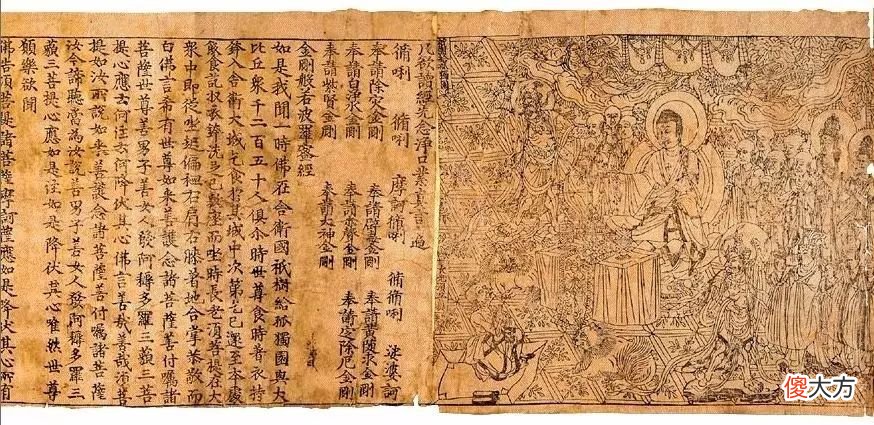 凡欲讀經先念淨口業真言一遍
脩唎 脩唎 摩訶脩唎 脩脩唎 娑婆訶
奉請除灾金剛 奉請辟毒金剛 奉請黄随求金剛
奉請白淨水金剛 奉請赤聲金剛 奉請定除厄金剛
奉請紫賢金剛 奉請大神金剛
金剛般若波羅蜜經
如是我聞一時佛在舍衛國祇樹給孤獨園與大
比丘衆千二百五十人俱尒時世尊食時著衣持
鉢入舍衛大城乞食於其城中次第乞已還至本處
飯食訖收衣鉢洗足已敷座而坐時長老須菩提在大
衆中即從坐起偏袒右肩右膝著地合掌恭敬而
白佛言希有世尊如来善護念諸菩薩善付囑諸
菩薩世尊善男子善女人發阿耨多羅三藐三菩
提心應云何住云何降伏其心佛言善哉善哉須菩
提如汝所說如来善護念諸菩薩善付囑諸菩薩
汝今諦聽當為汝說善男子善女人發阿耨多羅三
藐三菩提心應如是住如是降伏其心唯然世尊
願樂欲聞
佛告須菩提諸菩薩摩訶薩應如是降伏其心所有
傻大方